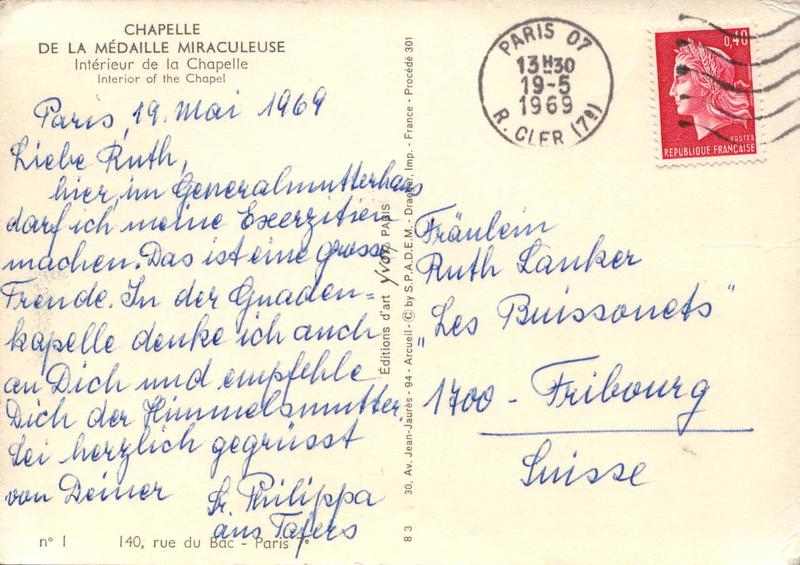 CHAPELLE
DE LA MÉDAILLE MIRACULEUSE
Intérieur de la Chapelle
Interior of the Chapel
Paris, 19. Mai 1969
Liebe Ruth,
hier, im Generalmutterhaus
darf ich meine Exerzitien
machen. Das ist eine grosse
Freude. In der Gnaden=
kapelle denke ich auch
an Dich und empfehle
Dich der Himmelsmutter.
Sei herzlich gegrüsst
von Deiner
Sr. Philippa
aus Tafers
n° 1 140, rue du Bac - Paris 7e
Éditions d'art yvon PARIS
30, Av. Jean-Jaurès - 94 - Arcueil - © by S.P.A.D.E.M. - Draeger, Imp. - France - Procédé 301
8 3
PARIS 07
13H30
19-5
1969
R. CLER (7e)
0,40
POSTES
REPUBLIQUE FRANÇAISE
Fräulein
Ruth Lanker
"Les Buissonets"
1700 - Fribourg
Suisse